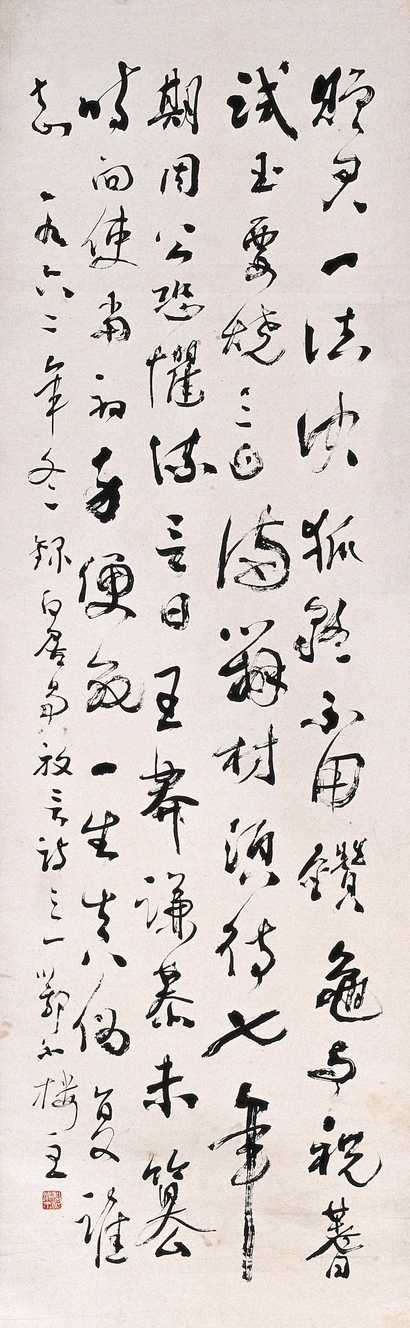 贈君一法決狐疑不用鑽龜與祝蓍
試玉要燒三日滿辨材須待七年
期周公恐懼流言日王莽謙恭未篡
時向使當初身便死一生真偽復誰
知 一九六二年冬 錄白居易放言詩之一 鄂不樓主